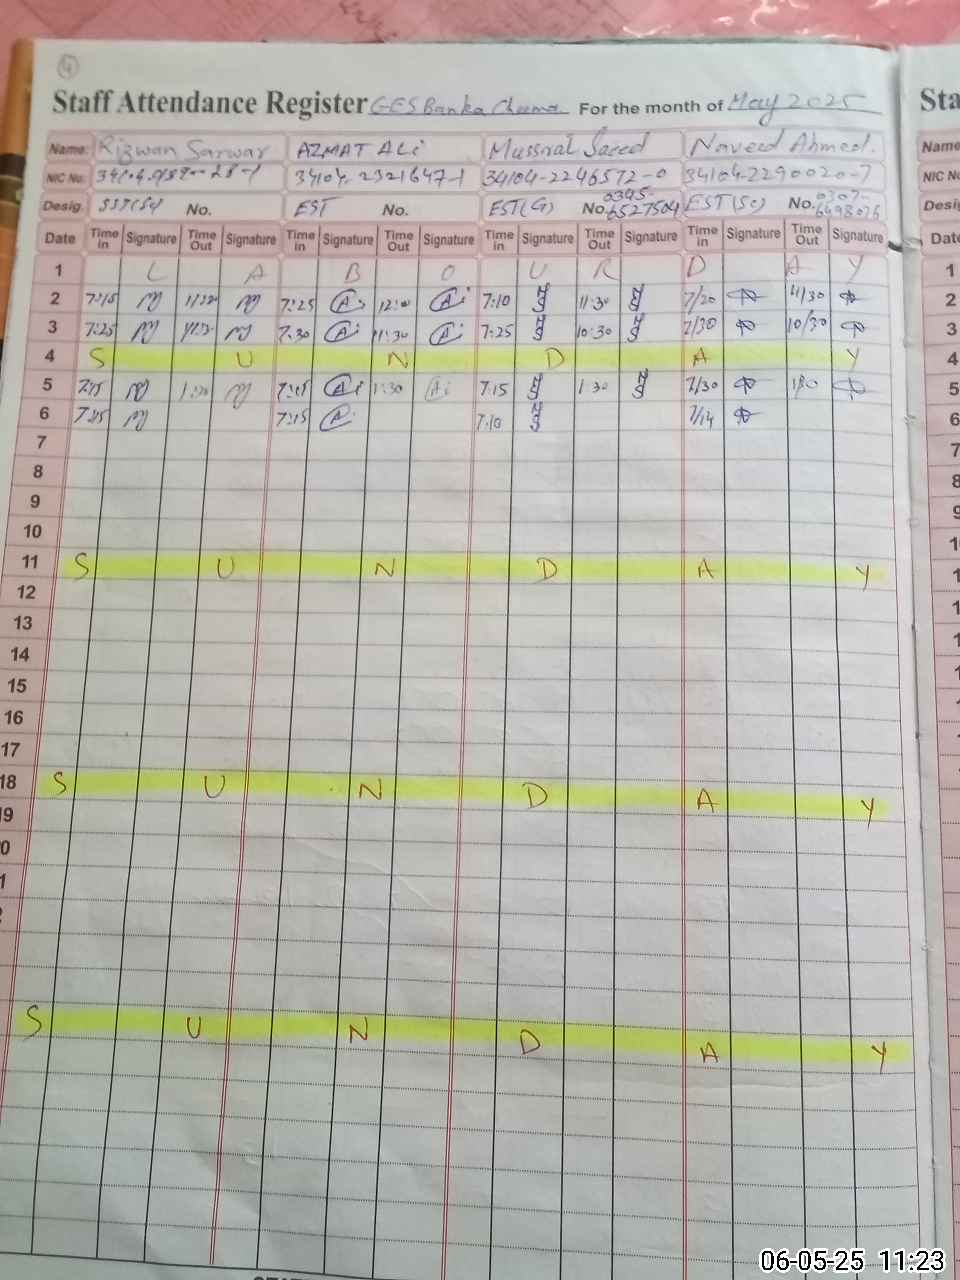 4
Staff Attendance Register GES Banka Cheema For the month of May 2025 Sta
Name: Rizwan Sarwar AZMAT ALi Mussnal Saeed Naveed Ahmed. Name
NIC No: 34104-2321647-1 34104-2246572-0 34104-2290020-7 NIC N
Desig. No. EST No. EST(G) No. 0345-6527504 EST(Sc) No. 0307- Desig
Date Time in Signature Time Out Signature Time in Signature Time Out Signature Time in Signature Time Out Signature Time in Signature Time Out Signature Date
1 L A B O U R D A Y 1
2 7:15 7:25 12:00 7:10 11:30 7/20 11/30 2
3 7:25 7:30 11:30 7:25 10:30 7/30 10/30 3
4 S U N D A Y 4
5 7:15 1:30 7:15 1:30 7:15 1:30 7/30 5
6 7:15 7:15 7:10 7/14 6
7 7
8 8
9 9
10 1
11 S U N D A Y 1
12 1
13 1
14 1
15 1
16
17
18 S U N D A Y
19
0
1
S U N D A Y
06-05-25 11:23